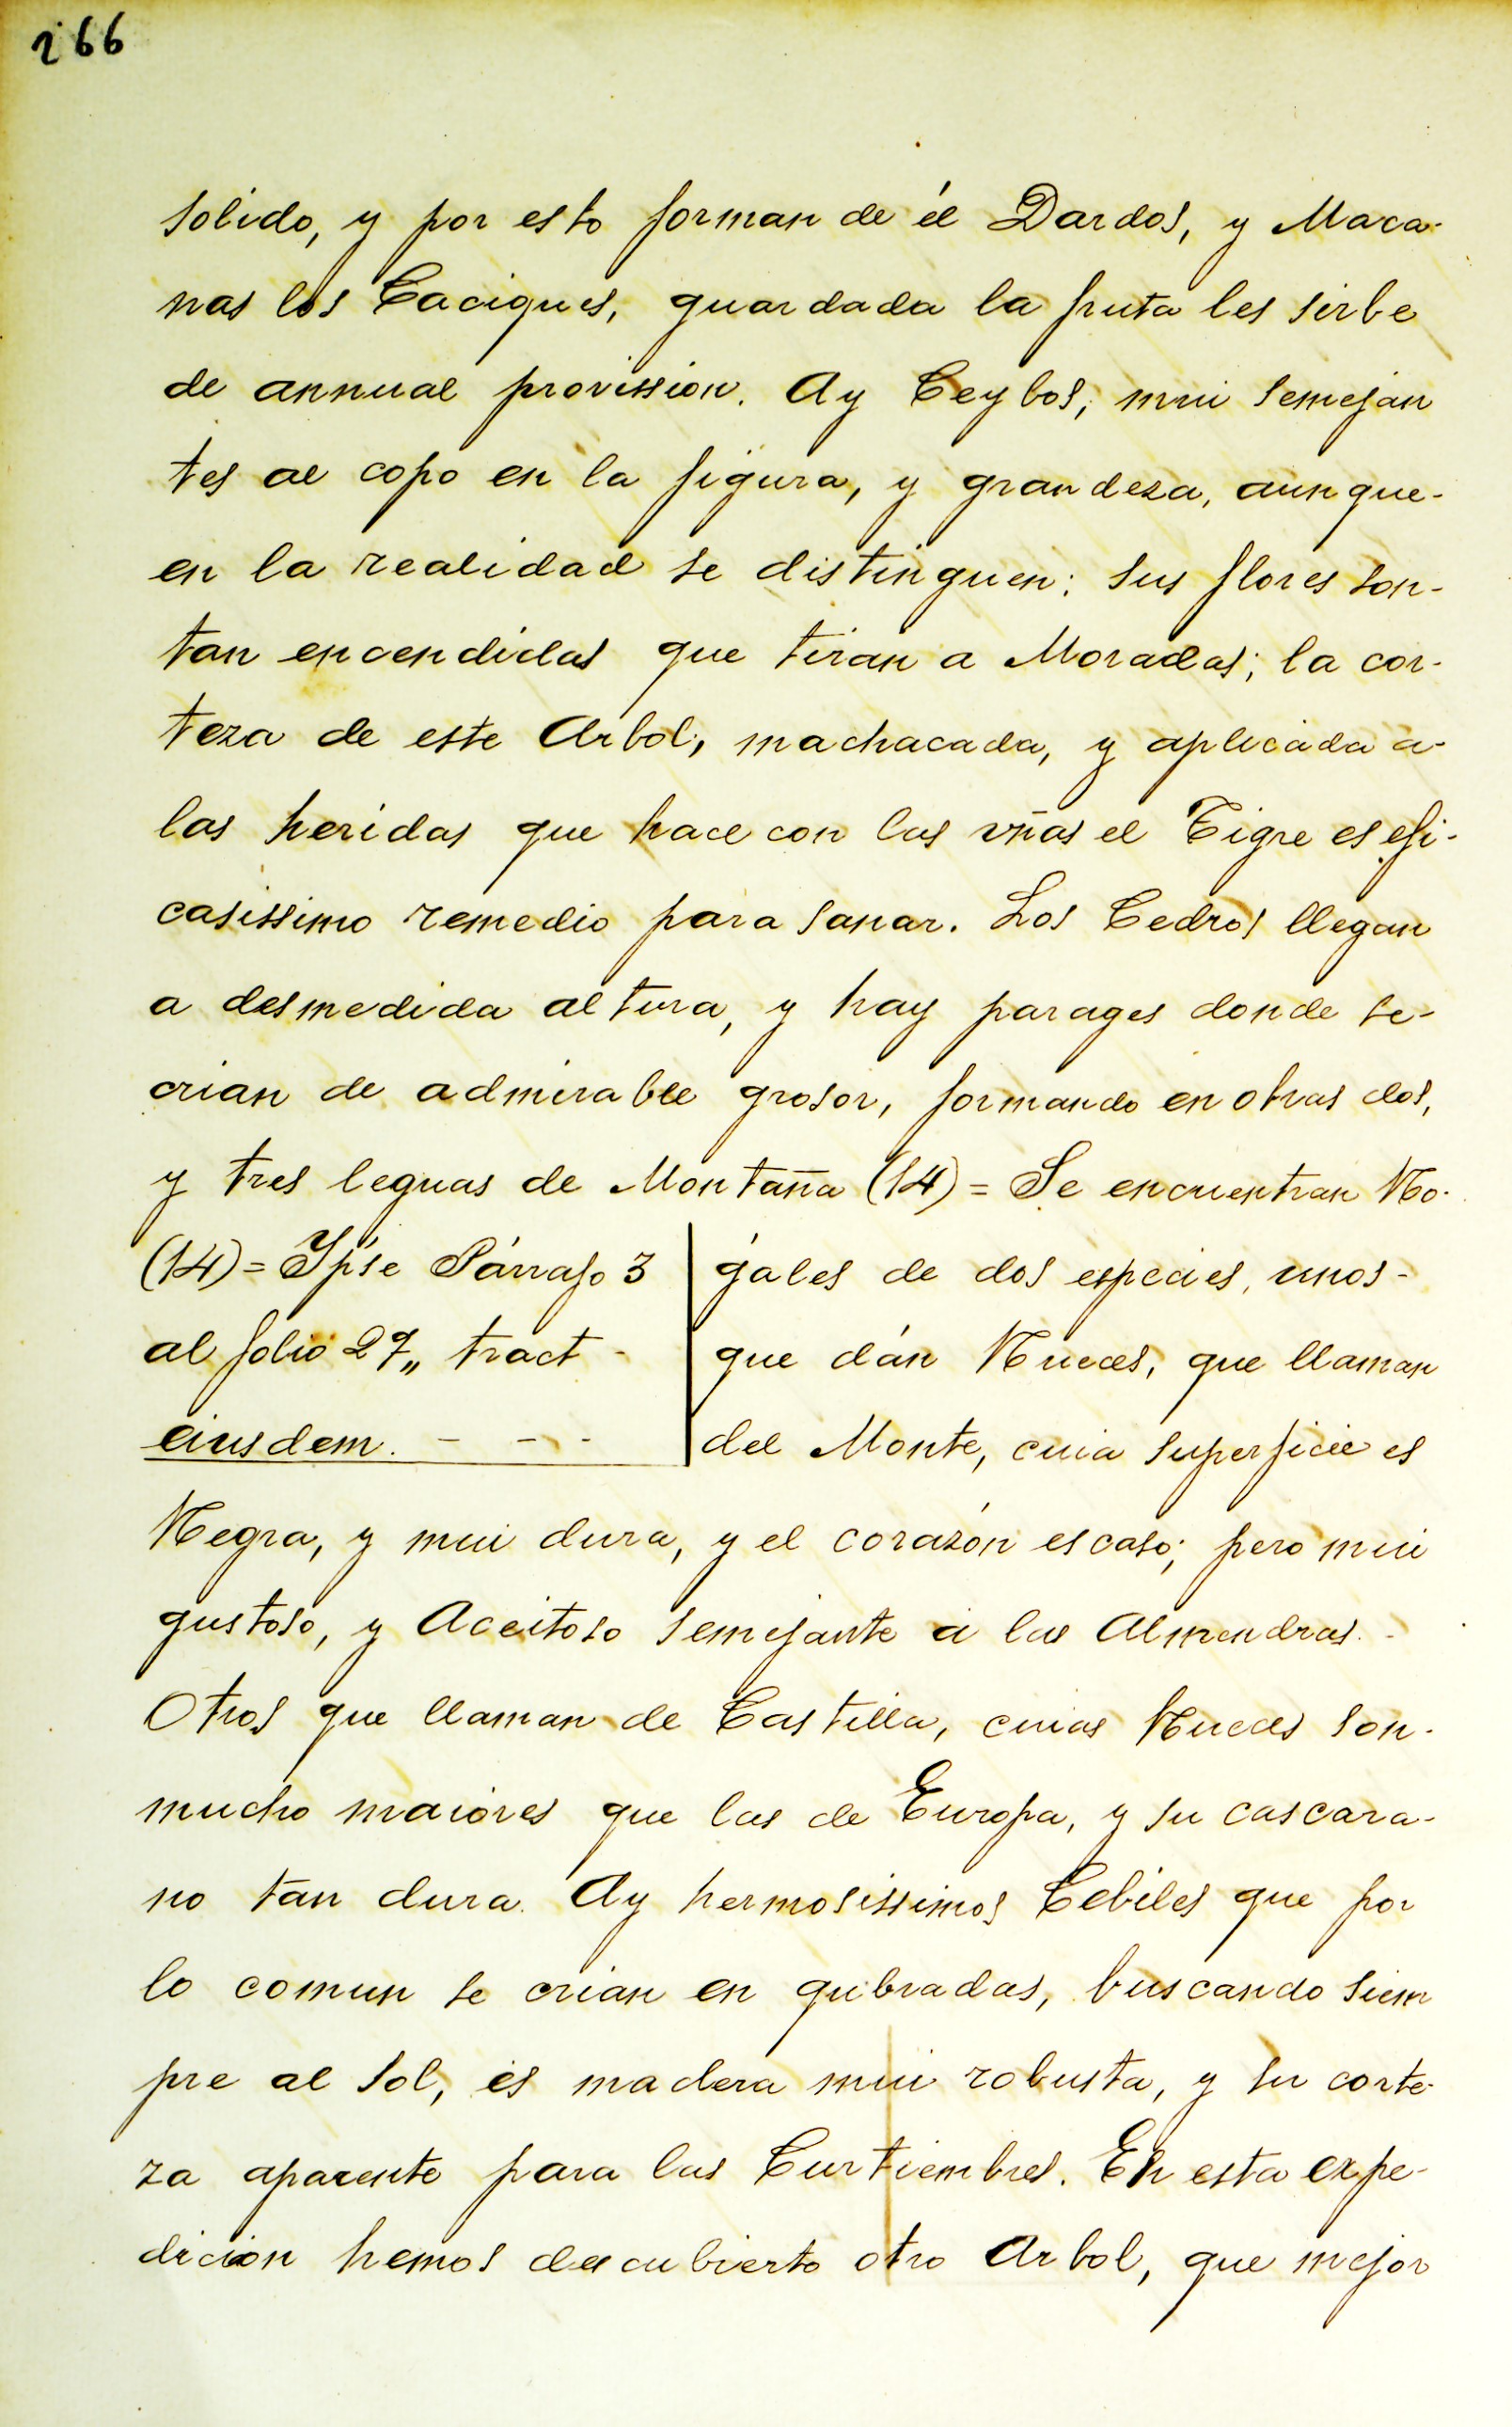 266
solido, y por esto forman de él Dardos, y Maca-
nas los Caciques, guardada la fruta les sirbe
de annual provission. Ay Ceybos, mui semejan
tes al copo en la figura, y grandeza, aunque-
en la realidad se distinguen: sus flores son-
tan encendidas que tiran a Moradas; la cor-
teza de este Arbol, machacada, y aplicada a-
las heridas que hace con las vñas el Tigre es efi-
casissimo remedio para sanar. Los Cedros llegan
a desmedida altura, y hay parages donde se-
crian de admirable grosor, formando en otras dos,
y tres leguas de Montaña (14) = Se encuentran No-
gales de dos especies, unos-
que dán Nueces, que llaman
del Monte, cuia superficie es
(14) = Ipse Párrafo 3
al folio 27,, tract -
eiusdem. - - -
Negra, y mui dura, y el corazón escaso; pero mui
gustoso, y Aceitoso semejante a las Almendras. -
Otros que llaman de Castilla, cuias Nueces son-
mucho maiores que las de Europa, y su cascara-
no tan dura. Ay hermosissimos Cebiles que por
lo comun se crian en qubradas, buscando siem
pre al sol, es madera mui robusta, y su corte-
za aparente para las Curtiembres. En esta expe-
dicion hemos descubierto otro Arbol, que mejor